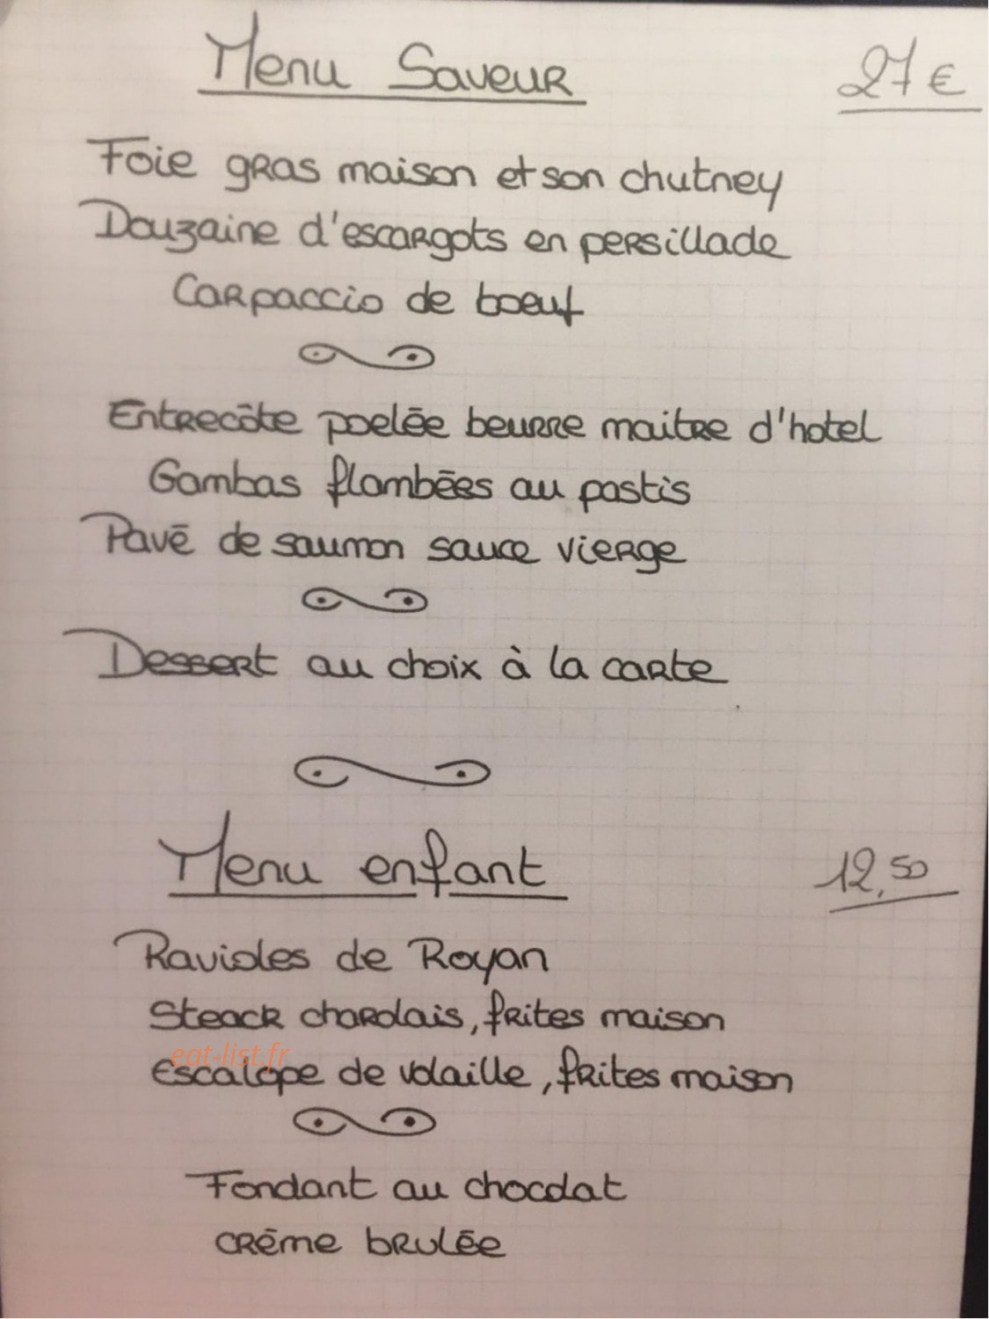 Menu Saveur 27 €
Foie gras maison et son chutney
Douzaine d'escargots en persillade
Carpaccio de boeuf
Entrecôte poelée beurre maitre d'hotel
Gambas flambées au pastis
Pavé de saumon sauce vierge
Dessert au choix à la carte
Menu enfant 12,50
Ravioles de Royan
Steack charolais, frites maison
eat-list.fr
Escalope de volaille, frites maison
Fondant au chocolat
crême brulée